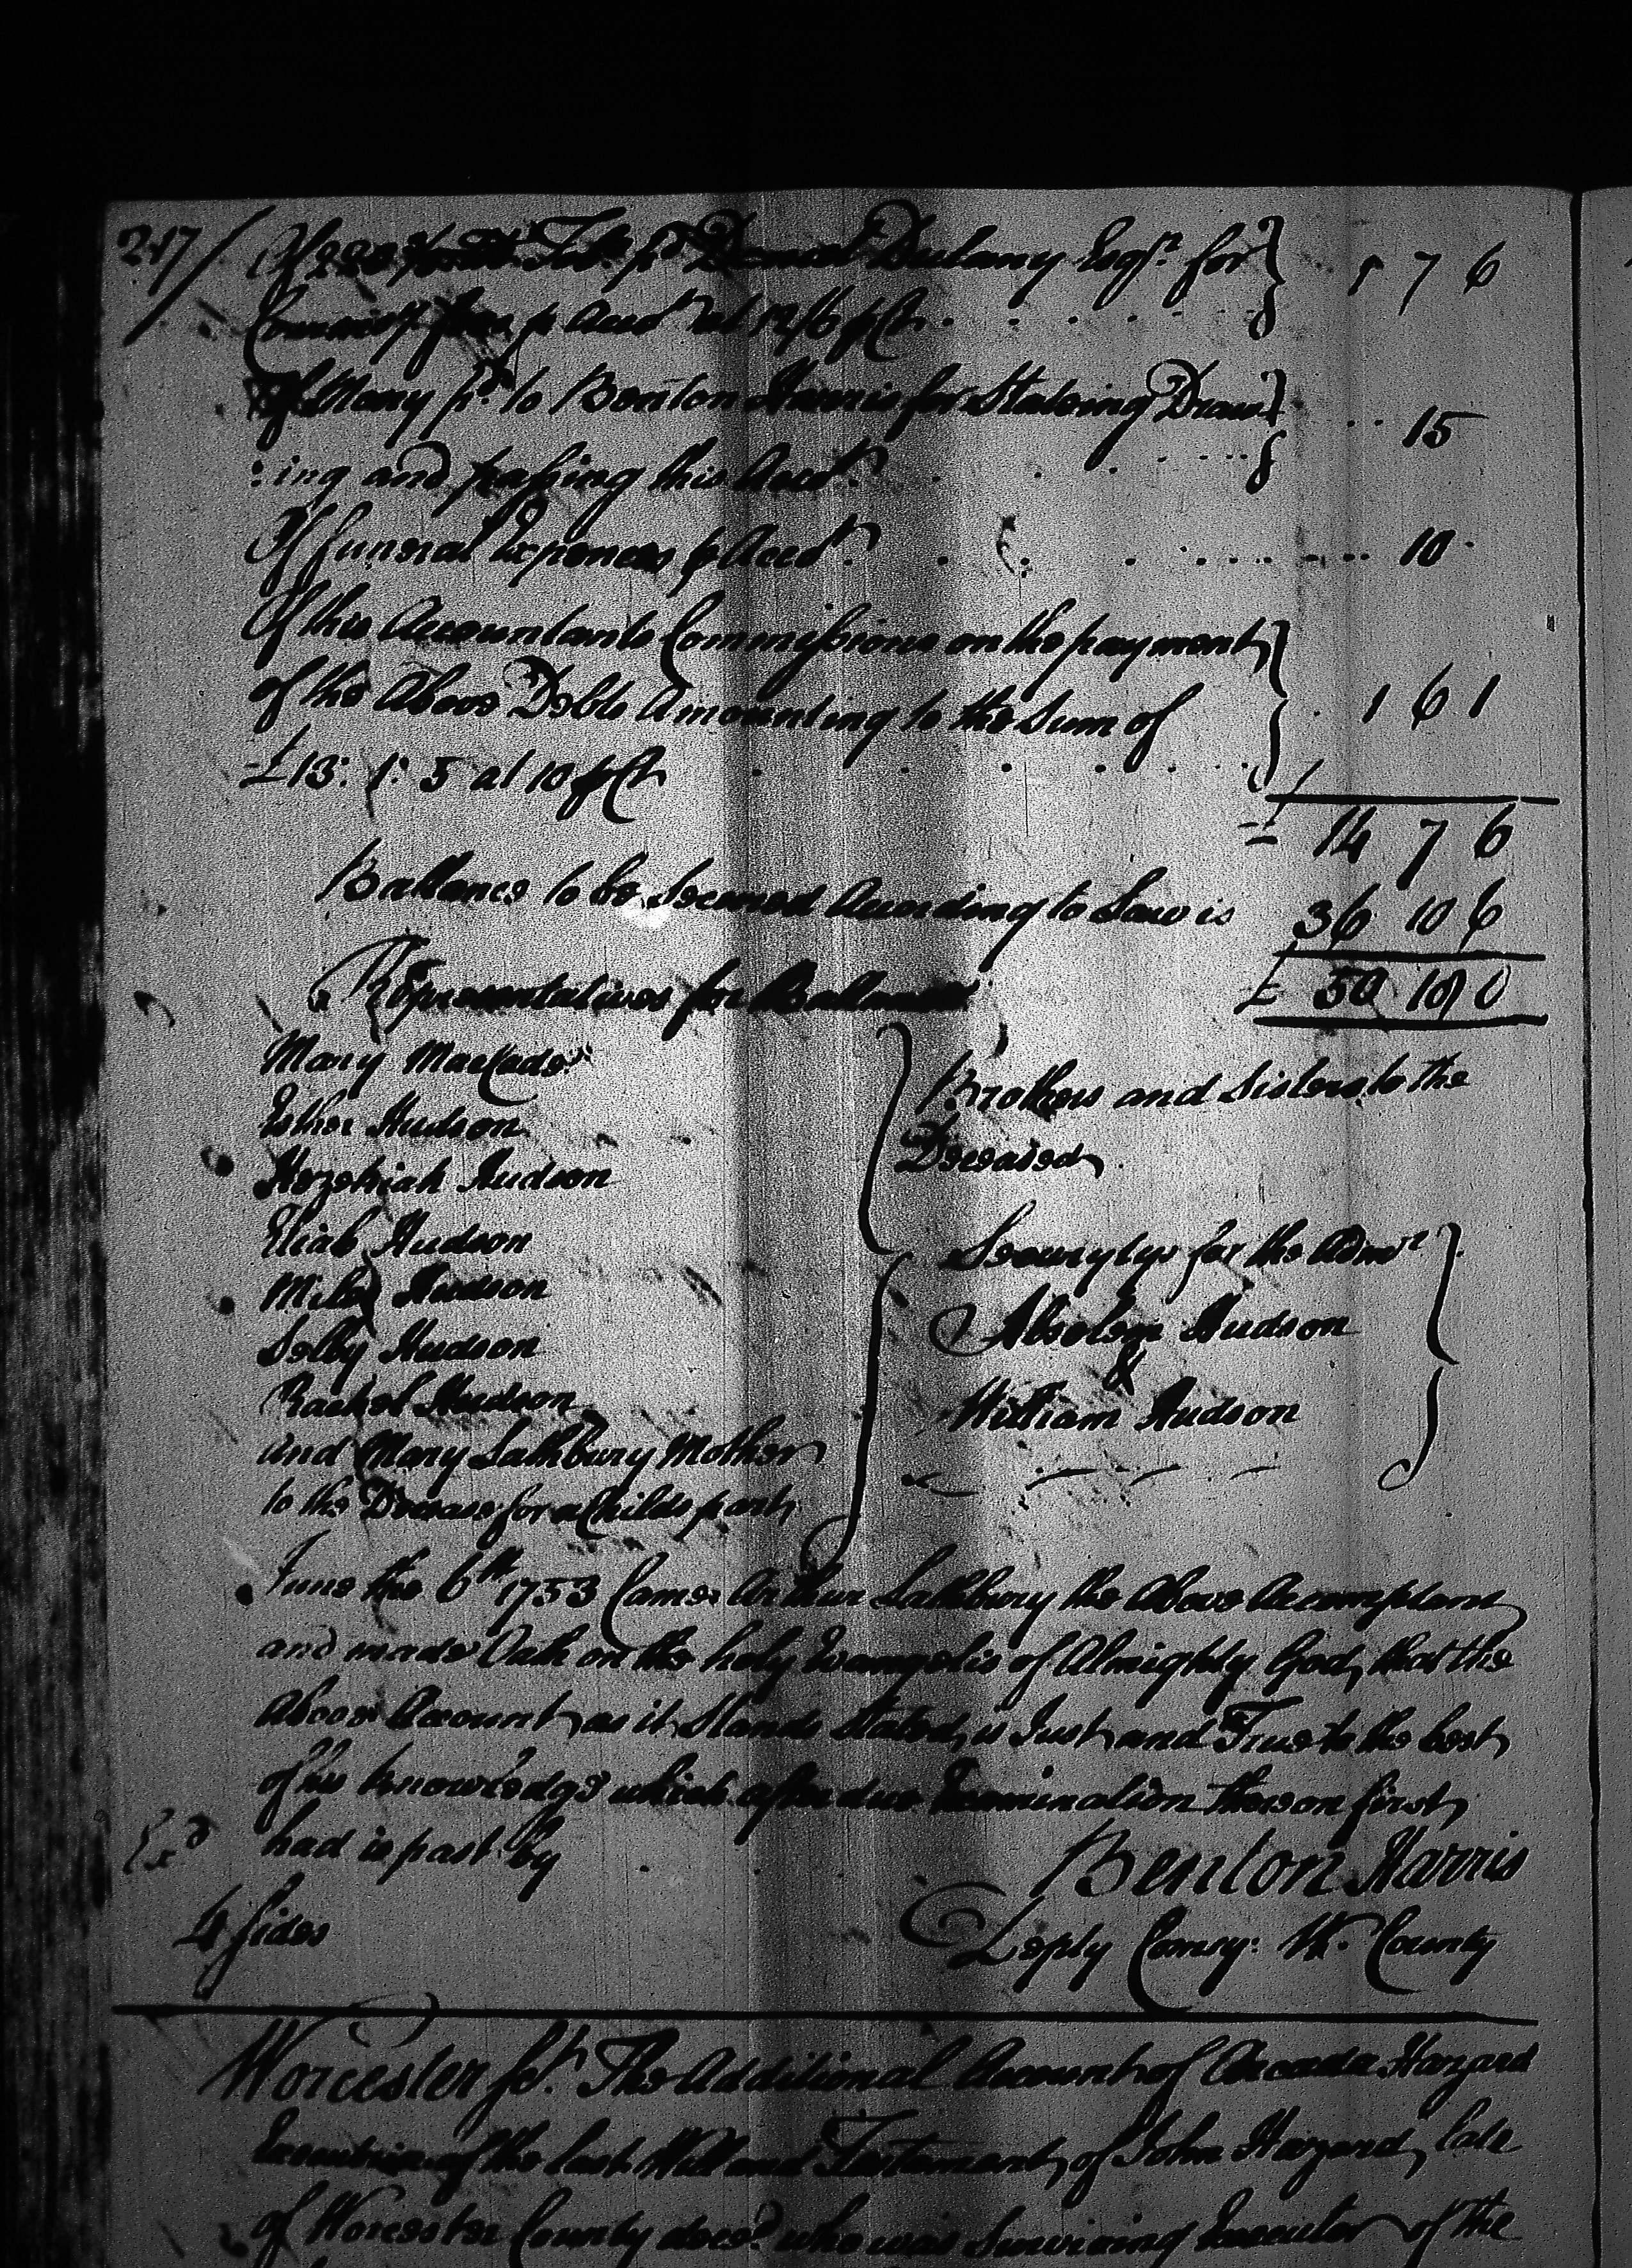 217/ Of 220 Tob. pd. Daniel Dulany Esqr. for 1 7 6
Commissy. fees p Acct. at 12/6 p Ct.
Of Mony pd. to Benton Harris for Stateing Draw 15
:ing and passing this Acct.
Of funeral Expences p Acct. 10
Of this Accountants Commissions on the payment
of the Above Debts Amounting to the Sum of 1 6 1
£13: 1: 5 at 10 p Ct
£ 14 7 6
Ballance to be Secured According to Law is 36 10 6
Representatives for Ballance £ 50 18 0
Mary
Esther Hudson
Hezekiah Hudson
Eliab Hudson
Milby Hudson
Selby Hudson
Rachel Hudson
and Mary Lathbury Mother
to the Decease for a Childs part
Brothers and Sisters to the
Deceased
Securytys for the Admr.
Absolem Hudson
&
William Hudson
June the 6th 1753 Came Arthur Lathbury the Above Accomptant
and made Oath on the holy Evangelis of Almighty God, that the
Above Account as it Stands Stated, is Just and True to the best
of his knowledge which after due Examination thereon first
Exd had is past by
Benton Harris
4 sides
Depty Comry: W. County
Worcester sct. The Additional Account of Hazard
Executrix of the last Will and Testament of John Hazard, late
of Worcester County decsd. who was Surviving Executor of the